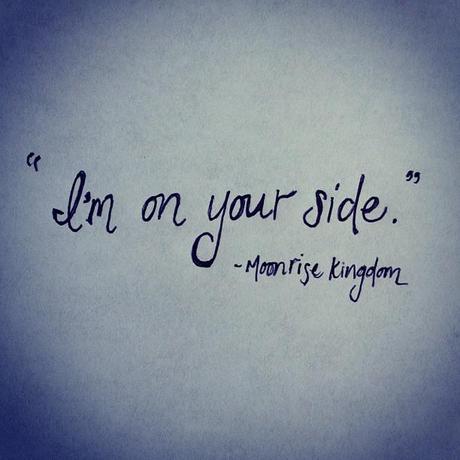 "I'm on your side."
~Moonrise Kingdom